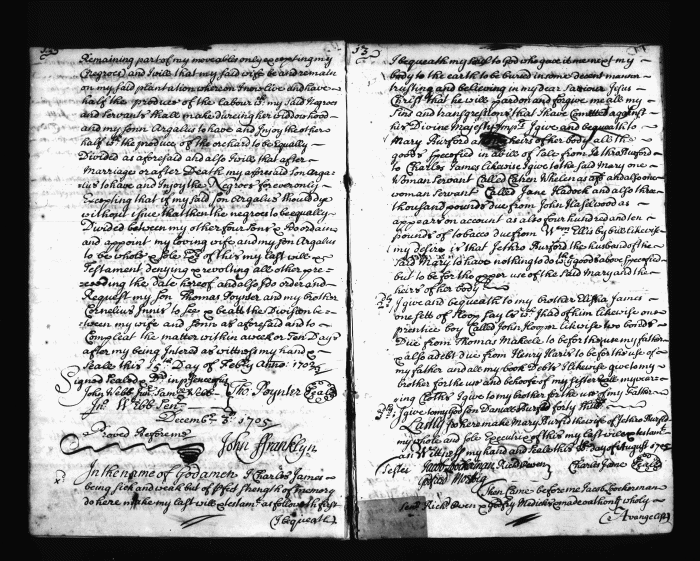 Remaining part of my moveables only excepting my
(Negroes) and I will that my said wife be and remain
on my said plantation whereon I now live and have
half the produce of the labour of my said Negroes
and Servants thall make dureing her widdowhood
and my sonn Argalus to have and Enjoy the other
half & the produce of the orchard to be Equally
Divided as aforesaid and also I will that after
Marriages or after Death my aforesaid Son Arga-
lus to have and Enjoy the Negroes for ever only
Excepting that if my said Son Argalus should dye
without issue that then the negroes to be equally
Divided between my other four Sons &
and appoint my loving wife and my Son Argalus
to be whole & Sole of this my last will &
Testament, denying & revoking all other pre-
ceeding the date hereof and also I do order and
Request my Son Thomas Poynter and my brother
Cornelius Innis to See & the Division be-
tween my wife and Sonn as aforesaid and to
Compleat the matter within a week or Ten Days
after my being Intered as wittness my hand &
Seale this Day of Febry Anno: 1702
Signed Sealed in presence of
John Webb Jnr. Saml. Webb Tho. Poynter Seale
Jn. Webb Sen.
Decemb. 3. 1705
Proved Before me
John Ffranklyn
In the name of God amen I Charles James
being sick and weak but of pfect strength of memory
do here make my last will & testamt. as followeth first
I bequeath
I bequeath my Soul to God who gave it me next my
body to the earth to be buried in some decent manner
trusting and believing in my dear Saviour Jesus
Christ that he will pardon and forgive me all my
Sins and transgressions that I have Comitted against
his Divine Majesty I give and bequeath to
Mary Burford and heirs of her body all the
goods Specefied in a will of Sale from Jethro Burford
to Charles James likewise I give to the said Mary one
Woman Servant Called Cathern Whelen as also one
woman Servant Called Jane Hadock and also three
thousand pounds due from John Haselwood as
appears on account as also four hundred and ten
pounds of tobacco due from Wm. Ellis by bill likewise
my desire is that Jethro Burford the husband of the
Said Mary to have nothing to do wth. the goods above Specefied
but to be for the opper use of the Said Mary and the
heirs of her body
I give and bequeath to my brother Elisha James
one Sett of likewise one
prentice boy Called John Hooper likewise two bonds
Due from Thomas Makeele to be for the use my father
& also a debt due from Henry Haris to be for the use of
my father and all my book Debts likewise give to my
brother for the use and behoofe of my sister
ing Cloths I give to my brother for the use of my Father
I give to my God son Daniell Burford forty
Lastly I do here make Mary Burford the wife of Jethro Burford
my whole and Sole Executrix of this my last will & testamt.
as Wittness my hand and seale this Day of August 1705
Testes Jacob Lockerman Richd. Owen Charles James Seale
Godfred Medrig
Then Came before me Jacob Lockerman
Send Richd. Owen & Godfry Medrick & made oath on the wholy
Evangelist